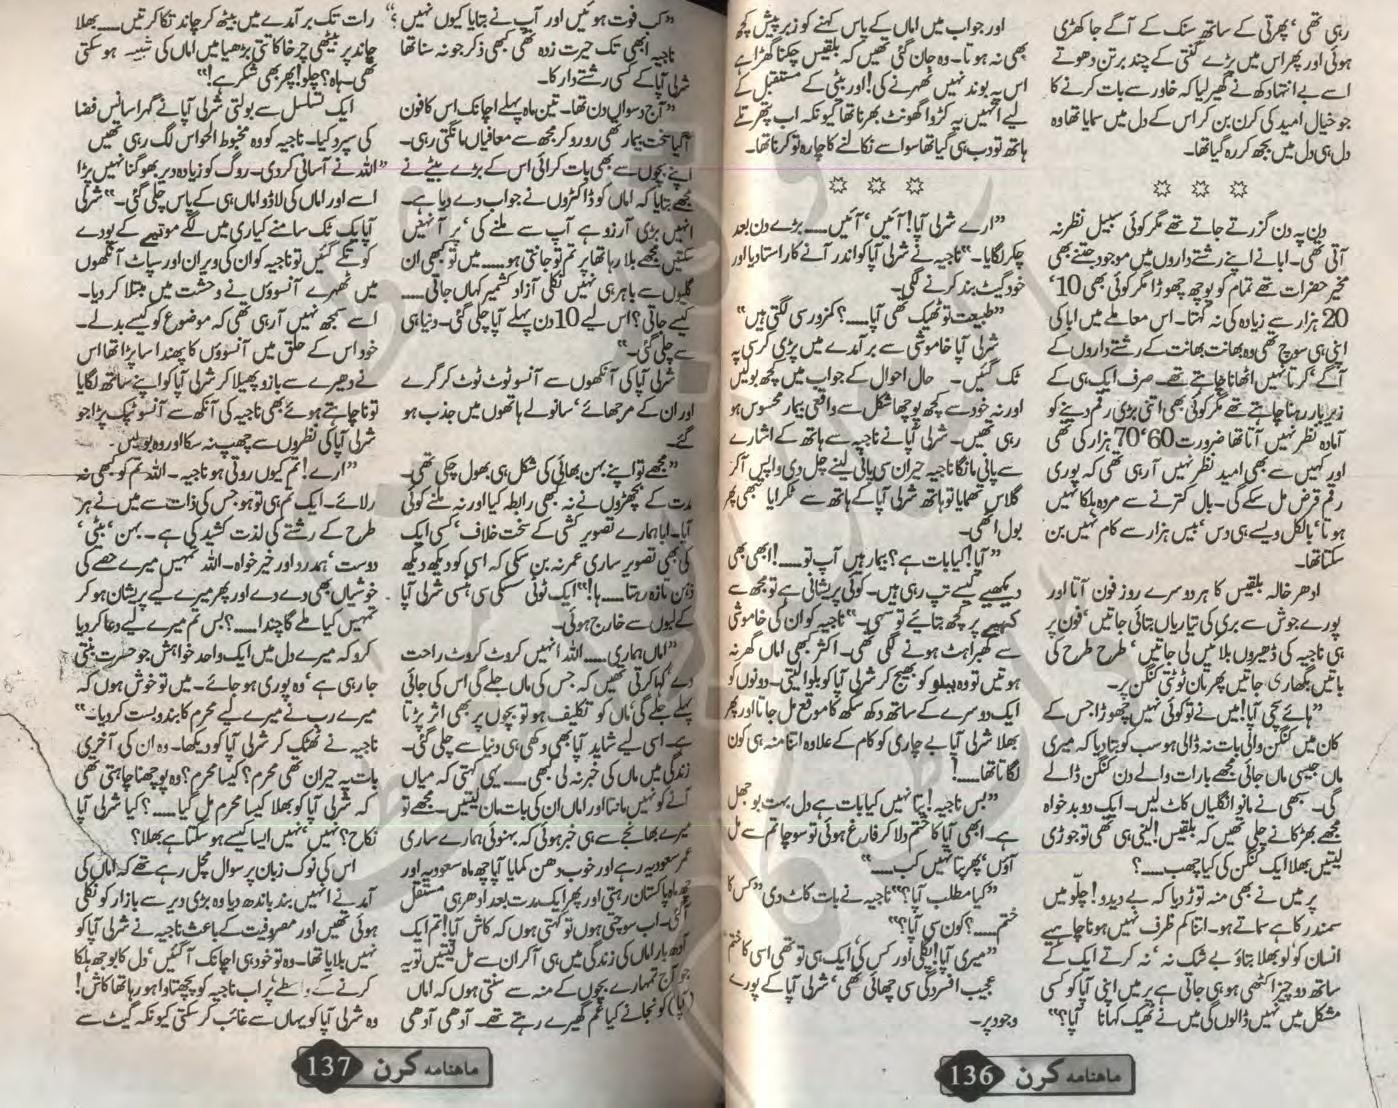 رہی تھی، پھرتی کے ساتھ سنک کے آگے جا کھڑی
ہوئی اور پھر اس میں پڑے گنتی کے چند برتن دھوتے
اسے بے انتہا دکھ نے گھیر لیا کہ خاور سے بات کرنے کا
جو خیال امید کی کرن بن کر اس کے دل میں سمایا تھا وہ
دل ہی دل میں بجھ کر رہ گیا تھا۔
☼ ☼ ☼
دن پہ دن گزرتے جاتے تھے مگر کوئی سبیل نظر نہ
آتی تھی۔ ابا نے اپنے رشتے داروں میں موجود جتنے بھی
مخیر حضرات تھے تمام کو پوچھ چھوڑا مگر کوئی بھی 10،
20 ہزار سے زیادہ کی نہ کہتا۔ اس معاملے میں ابا کی
اپنی ہی سوچ تھی وہ بھانت بھانت کے رشتے داروں کے
آگے گرنا نہیں اٹھانا چاہتے تھے۔ صرف ایک ہی کے
زیر بار رہنا چاہتے تھے مگر کوئی بھی اتنی بڑی رقم دینے کو
آمادہ نظر نہیں آتا تھا ضرورت 60، 70 ہزار کی تھی
اور کہیں سے بھی امید نظر نہیں آرہی تھی کہ پوری
رقم قرض مل سکے گی۔ بال کترنے سے مردہ ہلکا نہیں
ہوتا، بالکل ویسے ہی دس، بیس ہزار سے کام نہیں بن
سکتا تھا۔
ادھر خالہ بلقیس کا ہر دوسرے روز فون آتا اور
پورے جوش سے بری کی تیاریاں بتائی جاتیں، فون پر
ہی ناجیہ کی ڈھیروں بلائیں لی جاتیں، طرح طرح کی
باتیں بگھاری جاتیں پھر تان ٹوٹتی کنگن پر۔
”ہائے سچی آپا! میں نے تو کوئی نہیں چھوڑا جس کے
کان میں کنگن والی بات نہ ڈالی ہو سب کو بتا دیا کہ میری
ماں جیسی ماں جائی مجھے بارات والے دن کنگن ڈالے
گی۔ سبھی نے مانو انگلیاں کاٹ لیں۔ ایک دو بدخواہ
مجھے بھڑکانے چلی تھیں کہ بلقیس! لینی ہی تھی تو جوڑی
لیتیں بھلا ایک کنگن کی کیا چھب....؟
پر میں نے بھی منہ توڑ دیا کہ بے دیدو! چلو میں
سمندر کاہے سماتے ہو۔ اتنا کم ظرف نہیں ہونا چاہیے
انسان کو لو بھلا بتاؤ بے شک نہ، نہ کرتے ایک کے
ساتھ دو چیز اکٹھی ہو ہی جاتی ہے پر میں اپنی آپا کو کسی
مشکل میں نہیں ڈالوں گی میں نے ٹھیک کہا نا آپا؟“
اور جواب میں اماں کے پاس کہنے کو زیر پیش کچھ
بھی نہ ہوتا۔ وہ جان گئی تھیں کہ بلقیس چکنا گھڑا ہے
اس پہ بوند نہیں ٹھہرنے کی! اور بیٹی کے مستقبل کے
لیے انہیں یہ کڑوا گھونٹ بھرنا تھا کیونکہ اب پتھر تلے
ہاتھ تو دب ہی گیا تھا سو اسے نکالنے کا چارہ تو کرنا تھا۔
☼ ☼ ☼
”ارے شرلی آپا! آئیں، آئیں..... بڑے دن بعد
چکر لگایا۔“ ناجیہ نے شرلی آپا کو اندر آنے کا راستا دیا اور
خود گیٹ بند کرنے لگی۔
”طبیعت تو ٹھیک تھی آپا....؟ کمزور سی لگتی ہیں“
شرلی آپا خاموشی سے برآمدے میں پڑی کرسی پہ
ٹک گئیں۔ حال احوال کے جواب میں کچھ بولیں
اور نہ خود سے کچھ پوچھا شکل سے واقعی بیمار محسوس ہو
رہی تھیں۔ شرلی آپا نے ناجیہ سے ہاتھ کے اشارے
سے پانی مانگا ناجیہ حیران سی پانی لینے چل دی واپس آکر
گلاس تھمایا تو ہاتھ شرلی آپا کے ہاتھ سے ٹکرایا تبھی پھر
بول اٹھی۔
”آپا! کیا بات ہے؟ بیمار ہیں آپ تو.....! ابھی بھی
دیکھیے کیسے تپ رہی ہیں۔ کوئی پریشانی ہے تو مجھ سے
کہیے پر کچھ بتائیے تو سہی۔“ ناجیہ کو ان کی خاموشی
سے گھبراہٹ ہونے لگی تھی۔ اکثر بھی اماں گھر نہ
ہوتیں تو وہ ببلو کو بھیج کر شرلی آپا کو بلوا لیتی۔ دونوں کو
ایک دوسرے کے ساتھ دکھ سکھ کا موقع مل جاتا اور پھر
بھلا شرلی آپا بے چاری کو کام کے علاوہ اتنا منہ ہی کون
لگاتا تھا....!
”بس ناجیہ! پتا نہیں کیا بات ہے دل بہت بوجھل
ہے۔ ابھی آپا کا ختم دلا کر فارغ ہوئی تو سوچا تم سے مل
آؤں، پھر پتا نہیں کب.....“
”کیا مطلب آپا؟“ ناجیہ نے بات کاٹ دی ”کس کا
ختم.....؟ کون سی آپا؟“
”میری آپا! پگلی اور کس کی، ایک ہی تو تھی اسی کا ختم“
عجیب افسردگی سی چھائی تھی، شرلی آپا کے پورے
وجود پر۔
ماہنامہ کرن 136
”کب فوت ہوئیں اور آپ نے بتایا کیوں نہیں؟“
ناجیہ ابھی تک حیرت زدہ تھی کبھی ذکر جو نہ سنا تھا
شرلی آپا کے کسی رشتے دار کا۔
”آج دسواں دن تھا۔ تین ماہ پہلے اچانک اس کا فون
آگیا سخت بیمار تھی رو رو کر مجھ سے معافیاں مانگتی رہی۔
اپنے بچوں سے بھی بات کرائی اس کے بڑے بیٹے نے
مجھے بتایا کہ اماں کو ڈاکٹروں نے جواب دے دیا ہے۔
انہیں بڑی آرزو ہے آپ سے ملنے کی، پر آ نہیں
سکتیں مجھے بلا رہا تھا پر تم تو جانتی ہو..... میں تو کبھی ان
گلیوں سے باہر ہی نہیں نکلی آزاد کشمیر کہاں جاتی.....
کیسے جاتی؟ اس لیے 10 دن پہلے آپا چلی گئی۔ دنیا ہی
سے چلی گئی۔“
شرلی آپا کی آنکھوں سے آنسو ٹوٹ ٹوٹ کر گرے
اور ان کے مرجھائے، سانولے ہاتھوں میں جذب ہو
گئے۔
”مجھے تو اپنے بہن بھائی کی شکل ہی بھول چکی تھی۔
مدت کے بچھڑوں نے نہ کبھی رابطہ کیا اور نہ ملنے کوئی
آیا۔ ابا ہمارے تصویر کشی کے سخت خلاف، کسی ایک
کی بھی تصویر ساری عمر نہ بن سکی کہ اسی کو دیکھ دیکھ
ذہن تازہ رہتا.... ہا!“ ایک ٹوٹی سسکی سی ہنسی شرلی آپا
کے لبوں سے خارج ہوئی۔
”اماں ہماری..... اللہ انہیں کروٹ کروٹ راحت
دے، کہا کرتی تھیں کہ جس کی ماں جلے گی اس کی جائی
پہلے جلے گی، ماں کو تکلیف ہو تو بچوں پر بھی اثر پڑتا
ہے۔ اسی لیے شاید آپا بھی دکھی ہی دنیا سے چلی گئی۔
زندگی میں ماں کی خبر نہ لی کبھی.... یہی کہتی کہ میاں
آنے کو نہیں مانتا اور اماں ان کی بات مان لیتیں۔ مجھے تو
میرے بھانجے سے ہی خبر ہوئی کہ بہنوئی ہمارے ساری
عمر سعودیہ رہے اور خوب دھن کمایا آپا چھ ماہ سعودیہ اور
چھ ماہ پاکستان رہتی اور پھر ایک مدت بعد ادھر ہی مستقل
آگئی۔ اب سوچتی ہوں تو کہتی ہوں کہ کاش آپا! تم ایک
آدھ بار اماں کی زندگی میں ہی آکر ان سے مل لیتیں تو یہ
جو آج تمہارے بچوں کے منہ سے سنتی ہوں کہ اماں
(آپا) کو نجانے کیا غم گھیرے رہتے تھے۔ آدھی آدھی
رات تک برآمدے میں بیٹھ کر چاند تکا کرتیں.... بھلا
چاند پر بیٹھی چرخا کاتتی بڑھیا میں اماں کی شبیہ ہو سکتی
تھی۔ ہاہ؟ چلو! پھر بھی شکر ہے!“
ایک تسلسل سے بولتی شرلی آپا نے گہرا سانس فضا
کی سپرد کیا۔ ناجیہ کو وہ مخبوط الحواس لگ رہی تھیں
”اللہ نے آسانی کردی۔ روگ کو زیادہ دیر بھوگنا نہیں پڑا
اسے اور اماں کی لاڈو اماں ہی کے پاس چلی گئی۔“ شرلی
آپا یک ٹک سامنے کیاری میں لگے موتیے کے پودے
کو تکے گئیں تو ناجیہ کو ان کی ویران اور سپاٹ آنکھوں
میں ٹھہرے آنسوؤں نے وحشت میں مبتلا کر دیا۔
اسے سمجھ نہیں آرہی تھی کہ موضوع کو کیسے بدلے۔
خود اس کے حلق میں آنسوؤں کا پھندا سا پڑا تھا اس
نے دھیرے سے بازو پھیلا کر شرلی آپا کو اپنے ساتھ لگایا
تو نا چاہتے ہوئے بھی ناجیہ کی آنکھ سے آنسو ٹپک پڑا جو
شرلی آپا کی نظروں سے چھپ نہ سکا اور وہ بولیں۔
”ارے! تم کیوں روتی ہو ناجیہ۔ اللہ تم کو بھی نہ
رلائے۔ ایک تم ہی تو ہو جس کی ذات سے میں نے ہر
طرح کے رشتے کی لذت کشید کی ہے۔ بہن، بیٹی،
دوست، ہمدرد اور خیر خواہ۔ اللہ تمہیں میرے حصے کی
خوشیاں بھی دے دے اور پھر میرے لیے پریشان ہو کر
تمہیں کیا ملے گا چندا....؟ بس تم میرے لیے دعا کر دیا
کرو کہ میرے دل میں ایک واحد خواہش جو حسرت بنتی
جا رہی ہے، وہ پوری ہو جائے۔ میں تو خوش ہوں کہ
میرے رب نے میرے لیے محرم کا بندوبست کر دیا۔“
ناجیہ نے ٹھٹک کر شرلی آپا کو دیکھا۔ وہ ان کی آخری
بات پہ حیران تھی محرم؟ کیسا محرم؟ وہ پوچھنا چاہتی تھی
کہ شرلی آپا کو بھلا کیسا محرم مل گیا.....؟ کیا شرلی آپا
نکاح؟ نہیں، نہیں ایسا کیسے ہو سکتا ہے بھلا؟
اس کی نوک زبان پر سوال مچل رہے تھے کہ اماں کی
آمد نے انہیں بند باندھ دیا وہ بڑی دیر سے بازار کو نکلی
ہوئی تھیں اور مصروفیت کے باعث ناجیہ نے شرلی آپا کو
نہیں بلایا تھا۔ وہ تو خود ہی اچانک آگئیں، دل کا بوجھ ہلکا
کرنے کے واسطے، پر اب ناجیہ کو پچھتاوا ہو رہا تھا کاش!
وہ شرلی آپا کو یہاں سے غائب کر سکتی کیونکہ گیٹ سے
ماہنامہ کرن 137